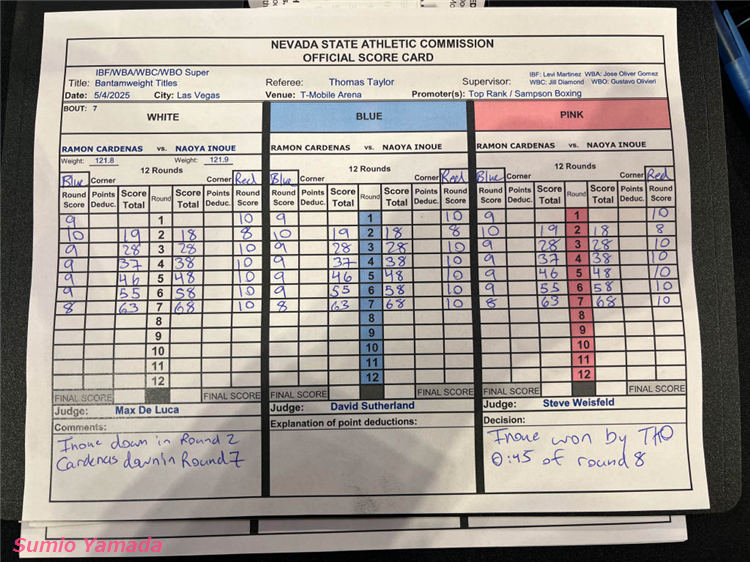 NEVADA STATE ATHLETIC COMMISSION
OFFICIAL SCORE CARD
IBF/WBA/WBC/WBO Super
Title: Bantamweight Titles Referee: Thomas Taylor Supervisor: IBF: Levi Martinez WBA: Jose Oliver Gomez
WBC: Jill Diamond WBO: Gustavo Olivieri
Date: 5/4/2025 City: Las Vegas Venue: T-Mobile Arena Promoter(s): Top Rank / Sampson Boxing
BOUT: 7
WHITE BLUE PINK
RAMON CARDENAS vs. NAOYA INOUE RAMON CARDENAS vs. NAOYA INOUE RAMON CARDENAS vs. NAOYA INOUE
Weight: 121.8 Weight: 121.9
12 Rounds 12 Rounds 12 Rounds
Blue Corner Corner Red Blue Corner Corner Red Blue Corner Corner Red
Round Score Points Deduc. Score Total Round Score Total Points Deduc. Round Score Round Score Points Deduc. Score Total Round Score Total Points Deduc. Round Score Round Score Points Deduc. Score Total Round Score Total Points Deduc. Round Score
9 1 10 9 1 10 9 1 10
10 19 2 18 8 10 19 2 18 8 10 19 2 18 8
9 28 3 28 10 9 28 3 28 10 9 28 3 28 10
9 37 4 38 10 9 37 4 38 10 9 37 4 38 10
9 46 5 48 10 9 46 5 48 10 9 46 5 48 10
9 55 6 58 10 9 55 6 58 10 9 55 6 58 10
8 63 7 68 10 8 63 7 68 10 8 63 7 68 10
8 8 8
9 9 9
10 10 10
11 11 11
12 12 12
FINAL SCORE FINAL SCORE FINAL SCORE FINAL SCORE FINAL SCORE FINAL SCORE
Judge: Max De Luca Judge: David Sutherland Judge: Steve Weisfeld
Comments: Explanation of point deductions: Decision:
Inoue down in Round 2 Inoue won by TKO
Cardenas down in Round 7 0:45 of round 8
Sumio Yamada